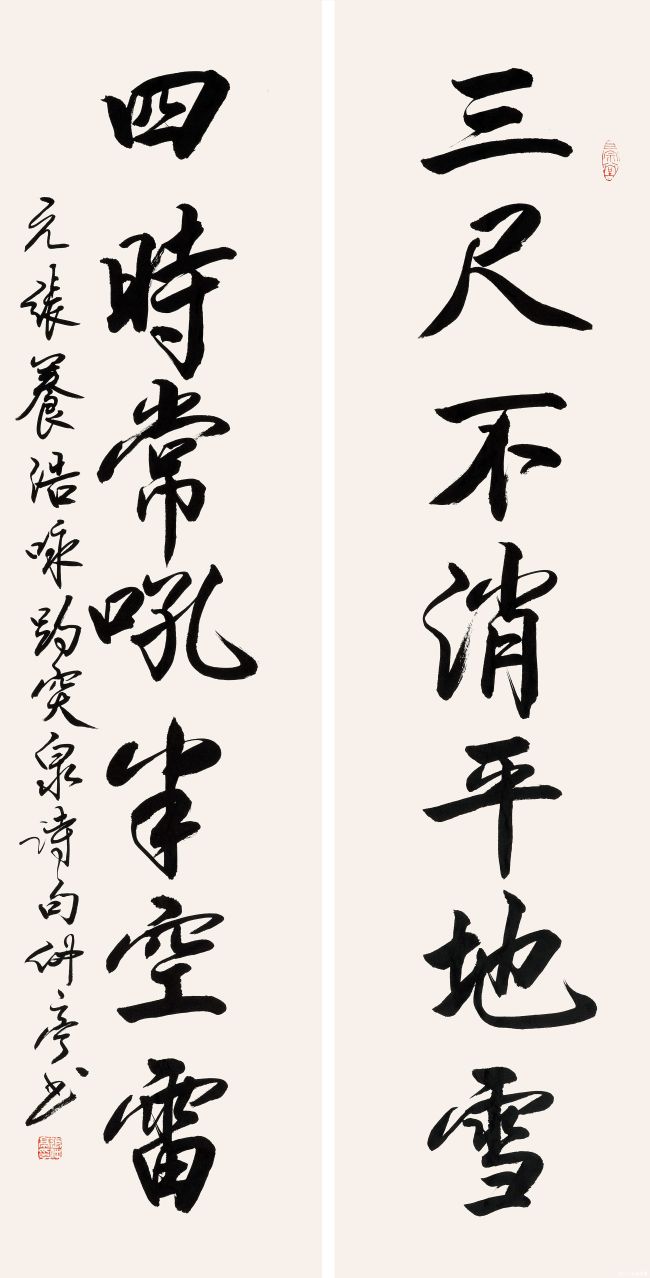 三尺不消平地雪
四時常吼半空雷
元張養浩詠趵突泉詩句仲亭书